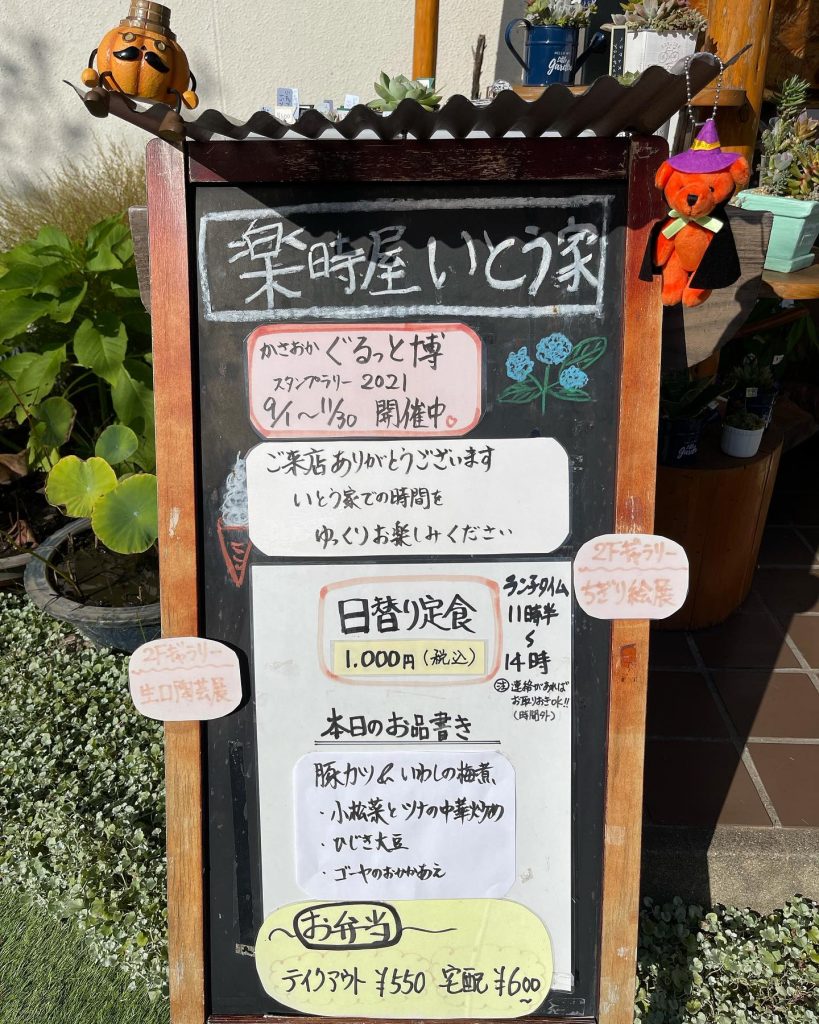 楽時屋 いとう家
かさおか ぐるっと博
スタンプラリー 2021
9/1〜11/30 開催中。
ご来店ありがとうございます
いとう家での時間を
ゆっくりお楽しみください
2Fギャラリー
ちぎり絵展
2Fギャラリー
生口陶芸展
日替り定食
1.000円(税込)
ランチタイム
11時半
〜
14時
注 連絡があれば
お取りおきOK!!
(時間外)
本日のお品書き
豚カツ & いわしの梅煮
・小松菜とツナの中華炒め
・ひじき大豆
・ゴーヤのおかかあえ
〜お弁当〜
テイクアウト ¥550 宅配 ¥600〜